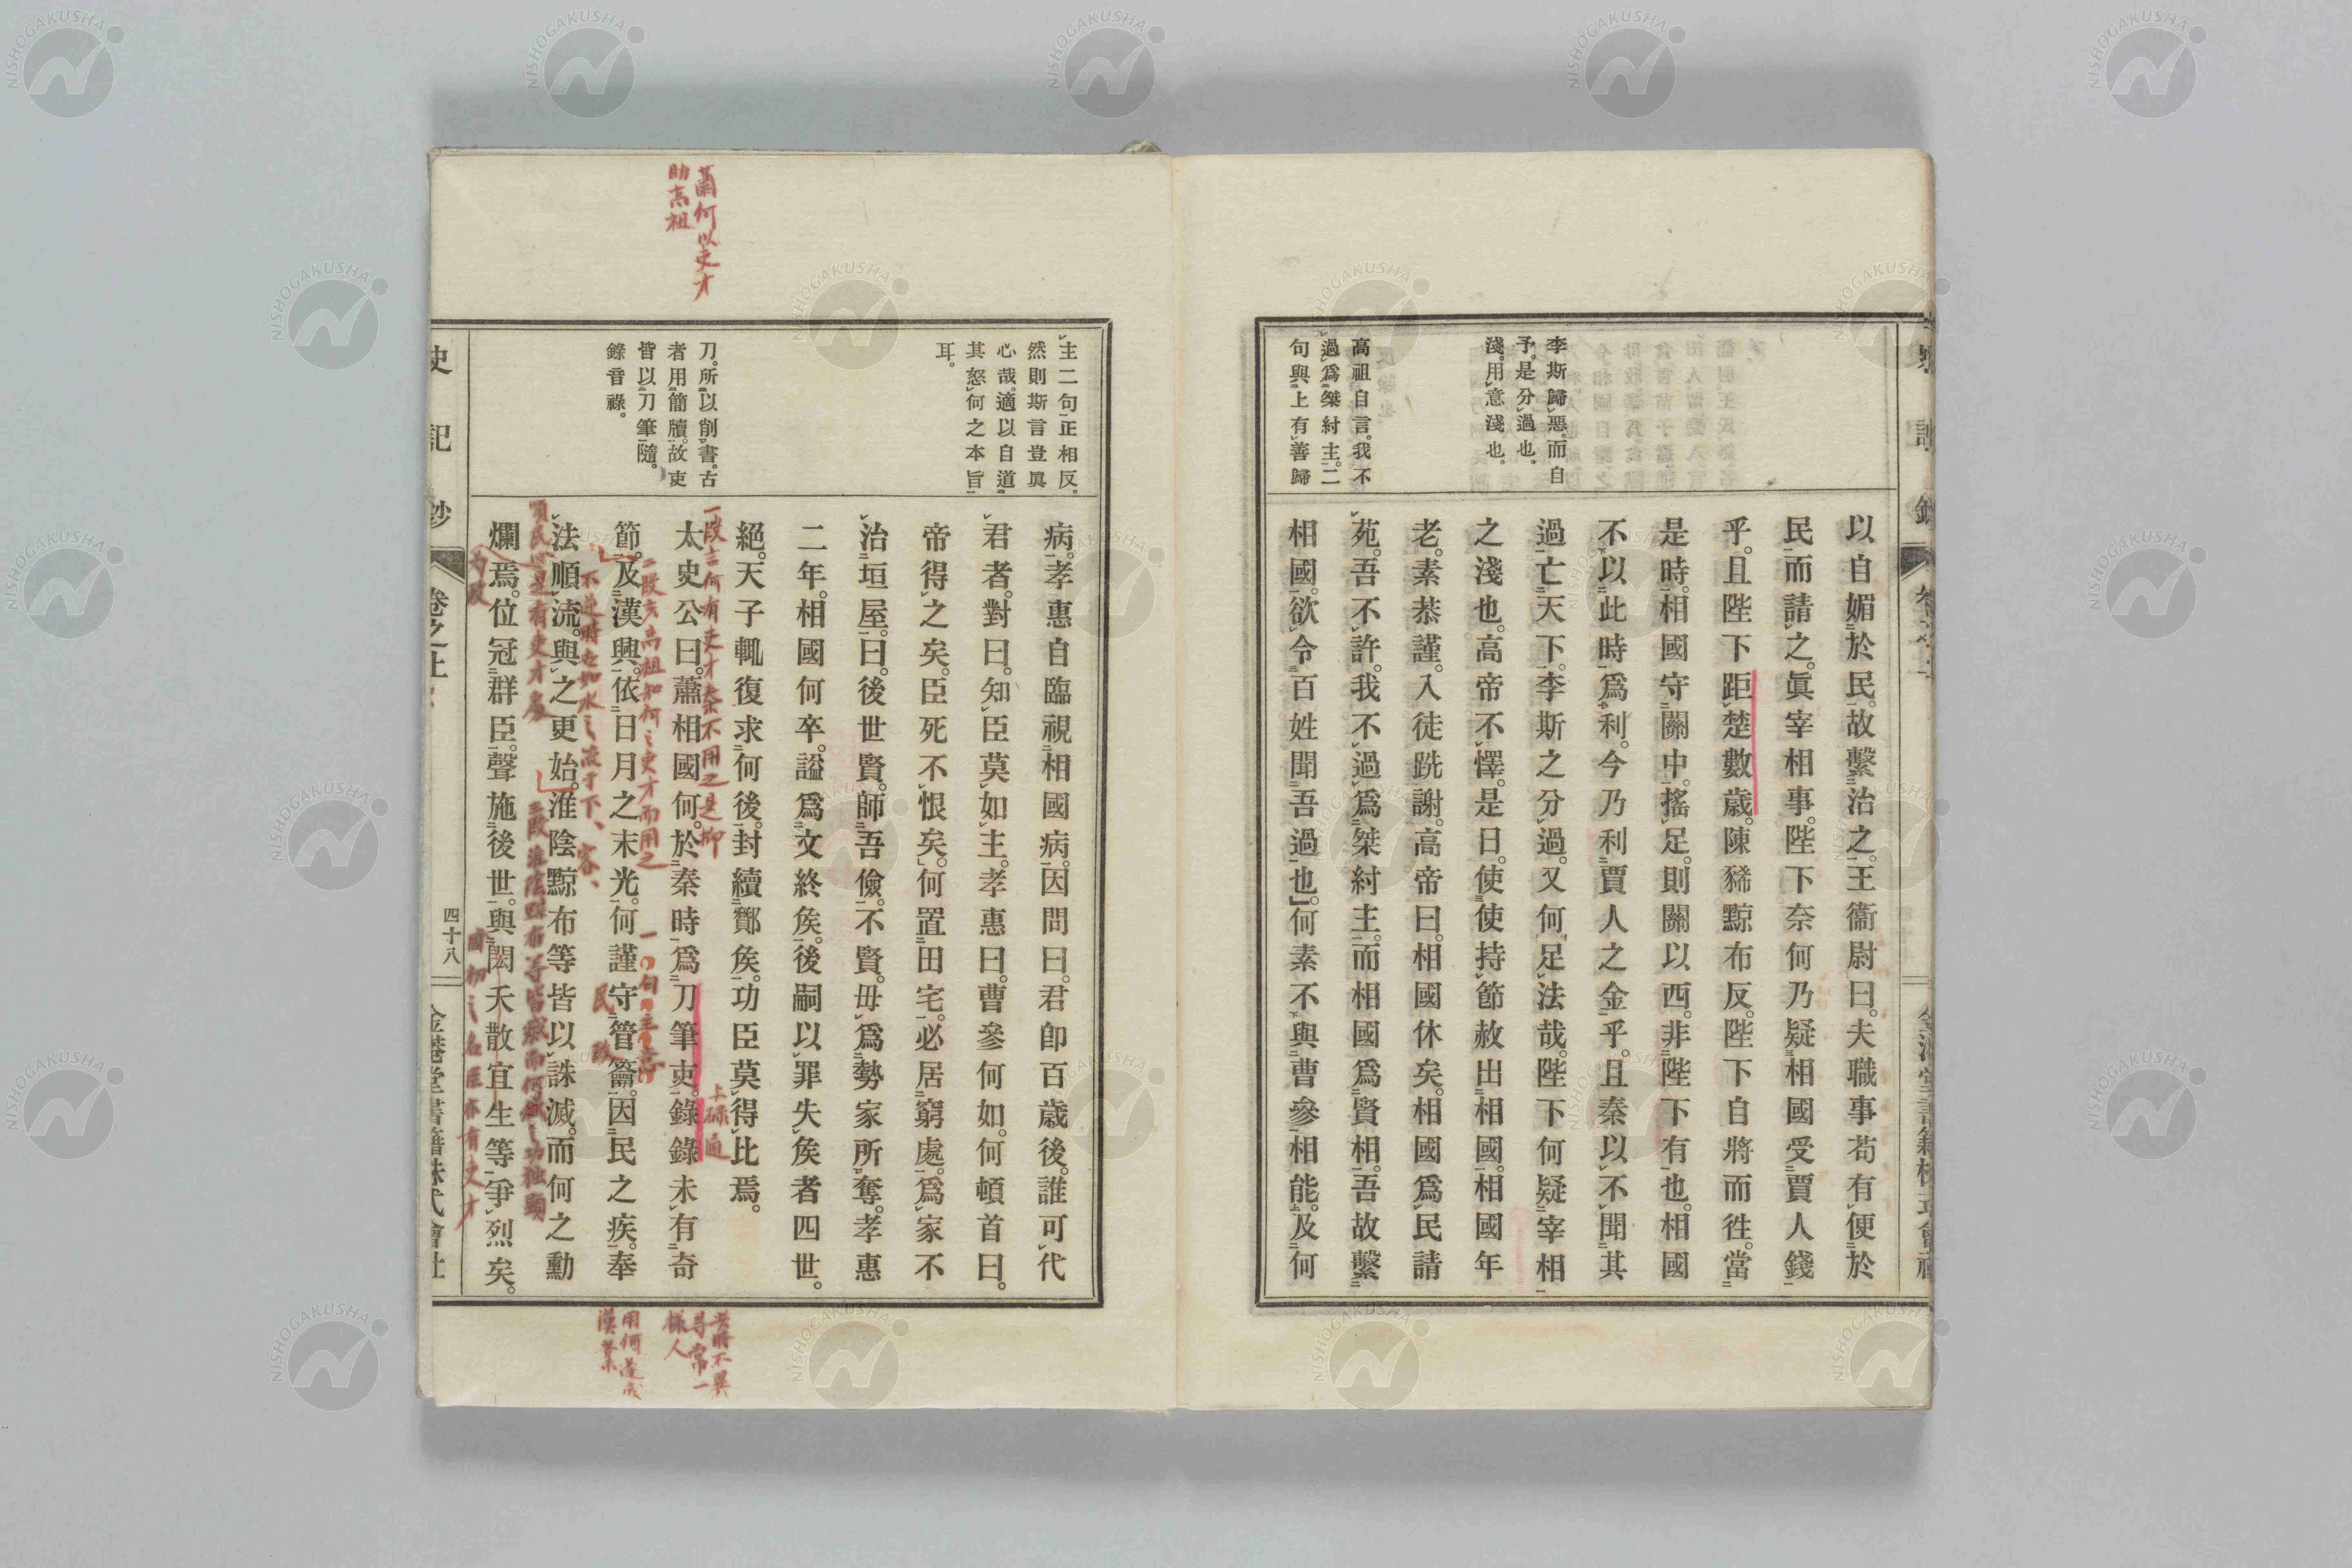 以自媚於民。故繫治之。王衞尉曰。夫職事苟有便於
民而請之。眞宰相事。陛下奈何乃疑相國受賈人錢
乎。且陛下距楚數歲。陳豨黥布反。陛下自將而徃。當
是時。相國守關中。搖足。則關以西。非陛下有也。相國
不以此時爲利。今乃利賈人之金乎。且秦以不聞其
過亡天下。李斯之分過。又何足法哉。陛下何疑宰相
之淺也。高帝不懌。是日。使使持節赦出相國。相國年
老。素恭謹。入徒跣謝。高帝曰。相國休矣。相國爲民請
苑。吾不許。我不過爲桀紂主。而相國爲賢相。吾故繫
相國。欲令百姓聞吾過也。」何素不與曹參相能。及何
李斯歸惡。而自
予。是分過也。
淺。用意淺也。
高祖自言。我不
過爲桀紂主。二
句與上有善歸
病。孝惠自臨視相國病。因問曰。君卽百歲後。誰可代
君者。對曰。知臣莫如主。孝惠曰。曹參何如。何頓首曰。
帝得之矣。臣死不恨矣。」何置田宅。必居窮處。爲家不
治垣屋。曰。後世賢。師吾儉。不賢。毋爲勢家所奪。孝惠
二年。相國何卒。謚爲文終矦。後嗣以罪失矦者四世。
絕。天子輒復求何後。封續酇矦。功臣莫得比焉。
太史公曰。蕭相國何。於秦時爲刀筆吏。錄錄未有奇
節。及漢興。依日月之末光。何謹守管籥。因民之疾。奉
法順流。與之更始。淮陰黥布等皆以誅滅。而何之勳
爛焉。位冠群臣。聲施後世。與閎夭散宜生等爭烈矣。
主二句正相反。
然則斯言豈眞
心哉。適以自道
其怒。何之本旨
耳。
刀。所以削書。古
者用簡牘。故吏
皆以刀筆隨。
錄音祿。
蕭何以吏才
助高祖
一段言何有吏才秦不用之是抑
二段言高祖知何之吏才而用之
一句主意
民政
上碌通
不逆時世如水之流于下、容、
順民心是有吏才處
三段淮陰黥布等皆滅而何之功独顕
國初之名臣亦有吏才
尋常一
様人
用何遂成
漢業
史記鈔
卷之上
四十八
金港堂書籍株式會社